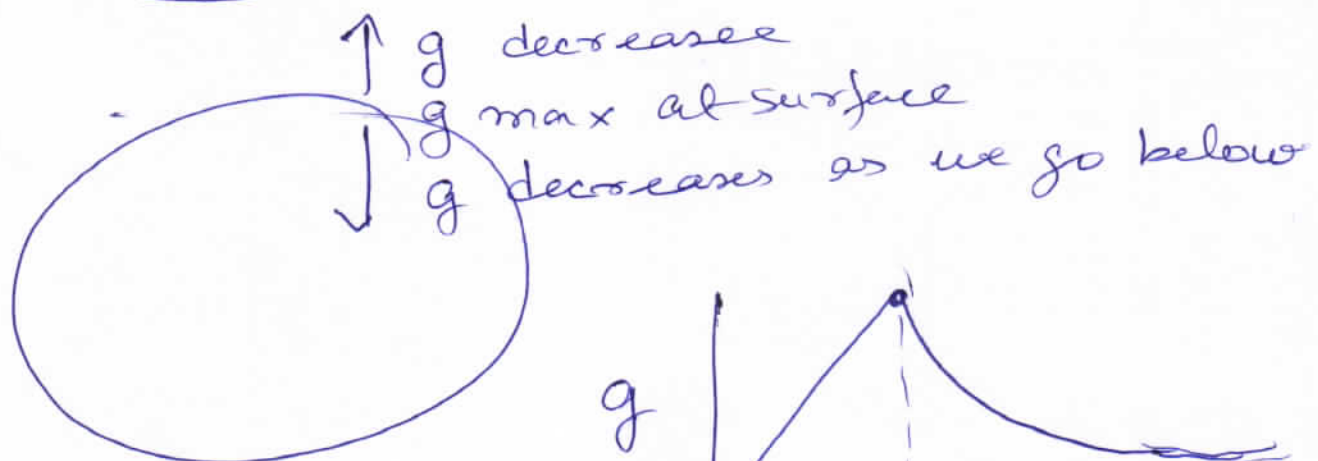 g decreasee
g max at surface
g decreases as we go below
g